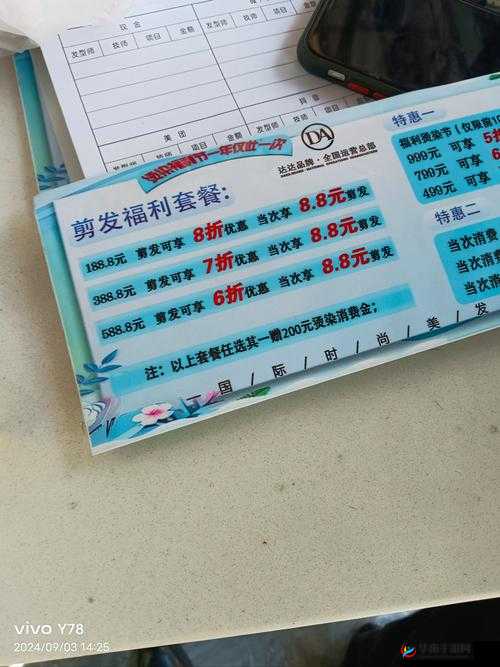 现金
发型师 技师 项目 金额 发型师 技师 项目 金额
美团
抖音
发型师 技师 项目 金额
年仅此一次
DA
达达品牌·全国运营总部
剪发福利套餐:
188.8元 剪发可享 8折优惠 当次享 8.8元剪发
388.8元 剪发可享 7折优惠 当次享 8.8元剪发
588.8元 剪发可享 6折优惠 当次享 8.8元剪发
注:以上套餐任选其一赠200元烫染消费金;
国 / 际 / 时 / 尚 / 美 / 发
特惠一
福利烫染节(仅限前10
999元 可享 5
799元 可享 6
499元 可享
特惠二
当次消费
当次消费
当次消
vivo Y78
2024/09/03 14:25
华南手游网